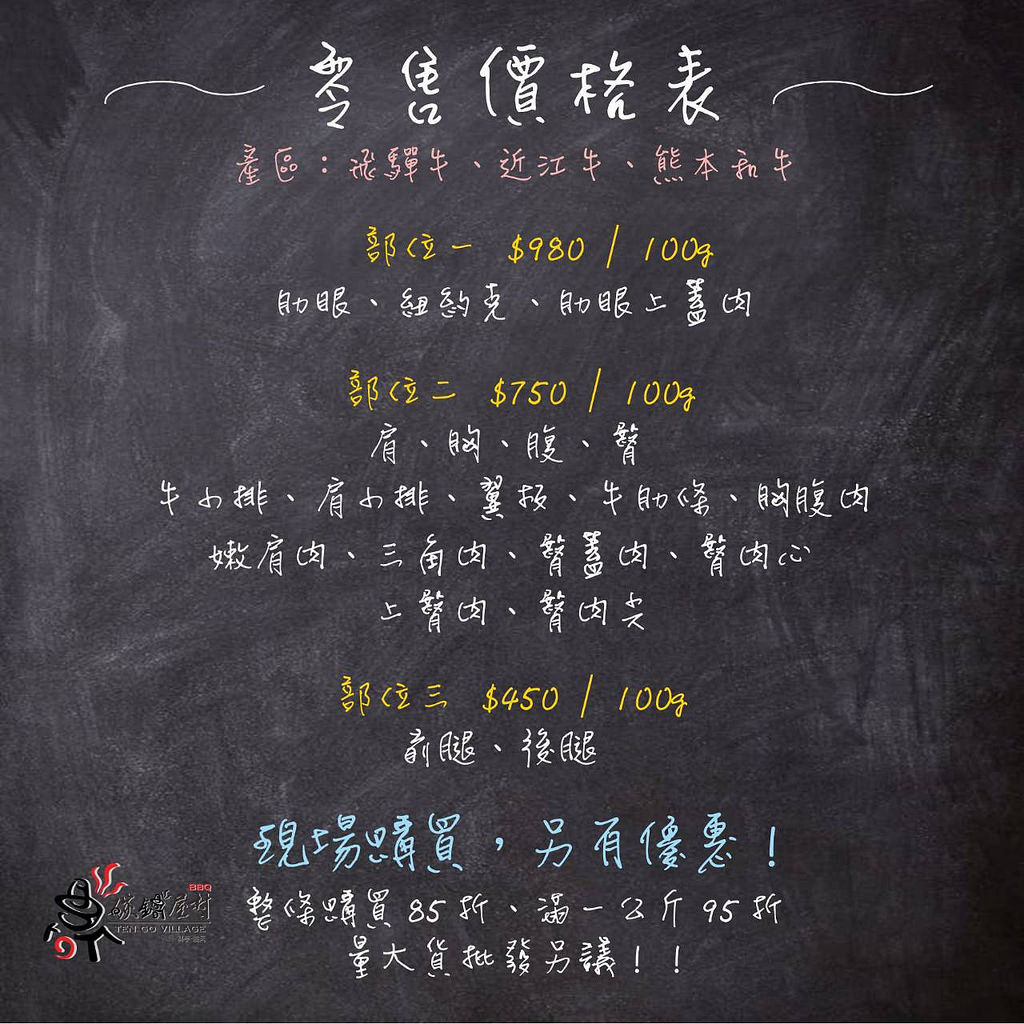 零售價格表
產區：飛驒牛、近江牛、熊本和牛
部位一 $980 / 100g
肋眼、紐約克、肋眼上蓋肉
部位二 $750 / 100g
肩、胸、腹、臀
牛小排、肩小排、翼板、牛肋條、胸腹肉
嫩肩肉、三角肉、臀蓋肉、臀肉心
上臀肉、臀肉尖
部位三 $450 / 100g
前腿、後腿
現場購買，另有優惠！
整條購買85折、滿一公斤95折
量大貨批發另議！！
BBQ
碳鑛屋村
TEN GO VILLAGE